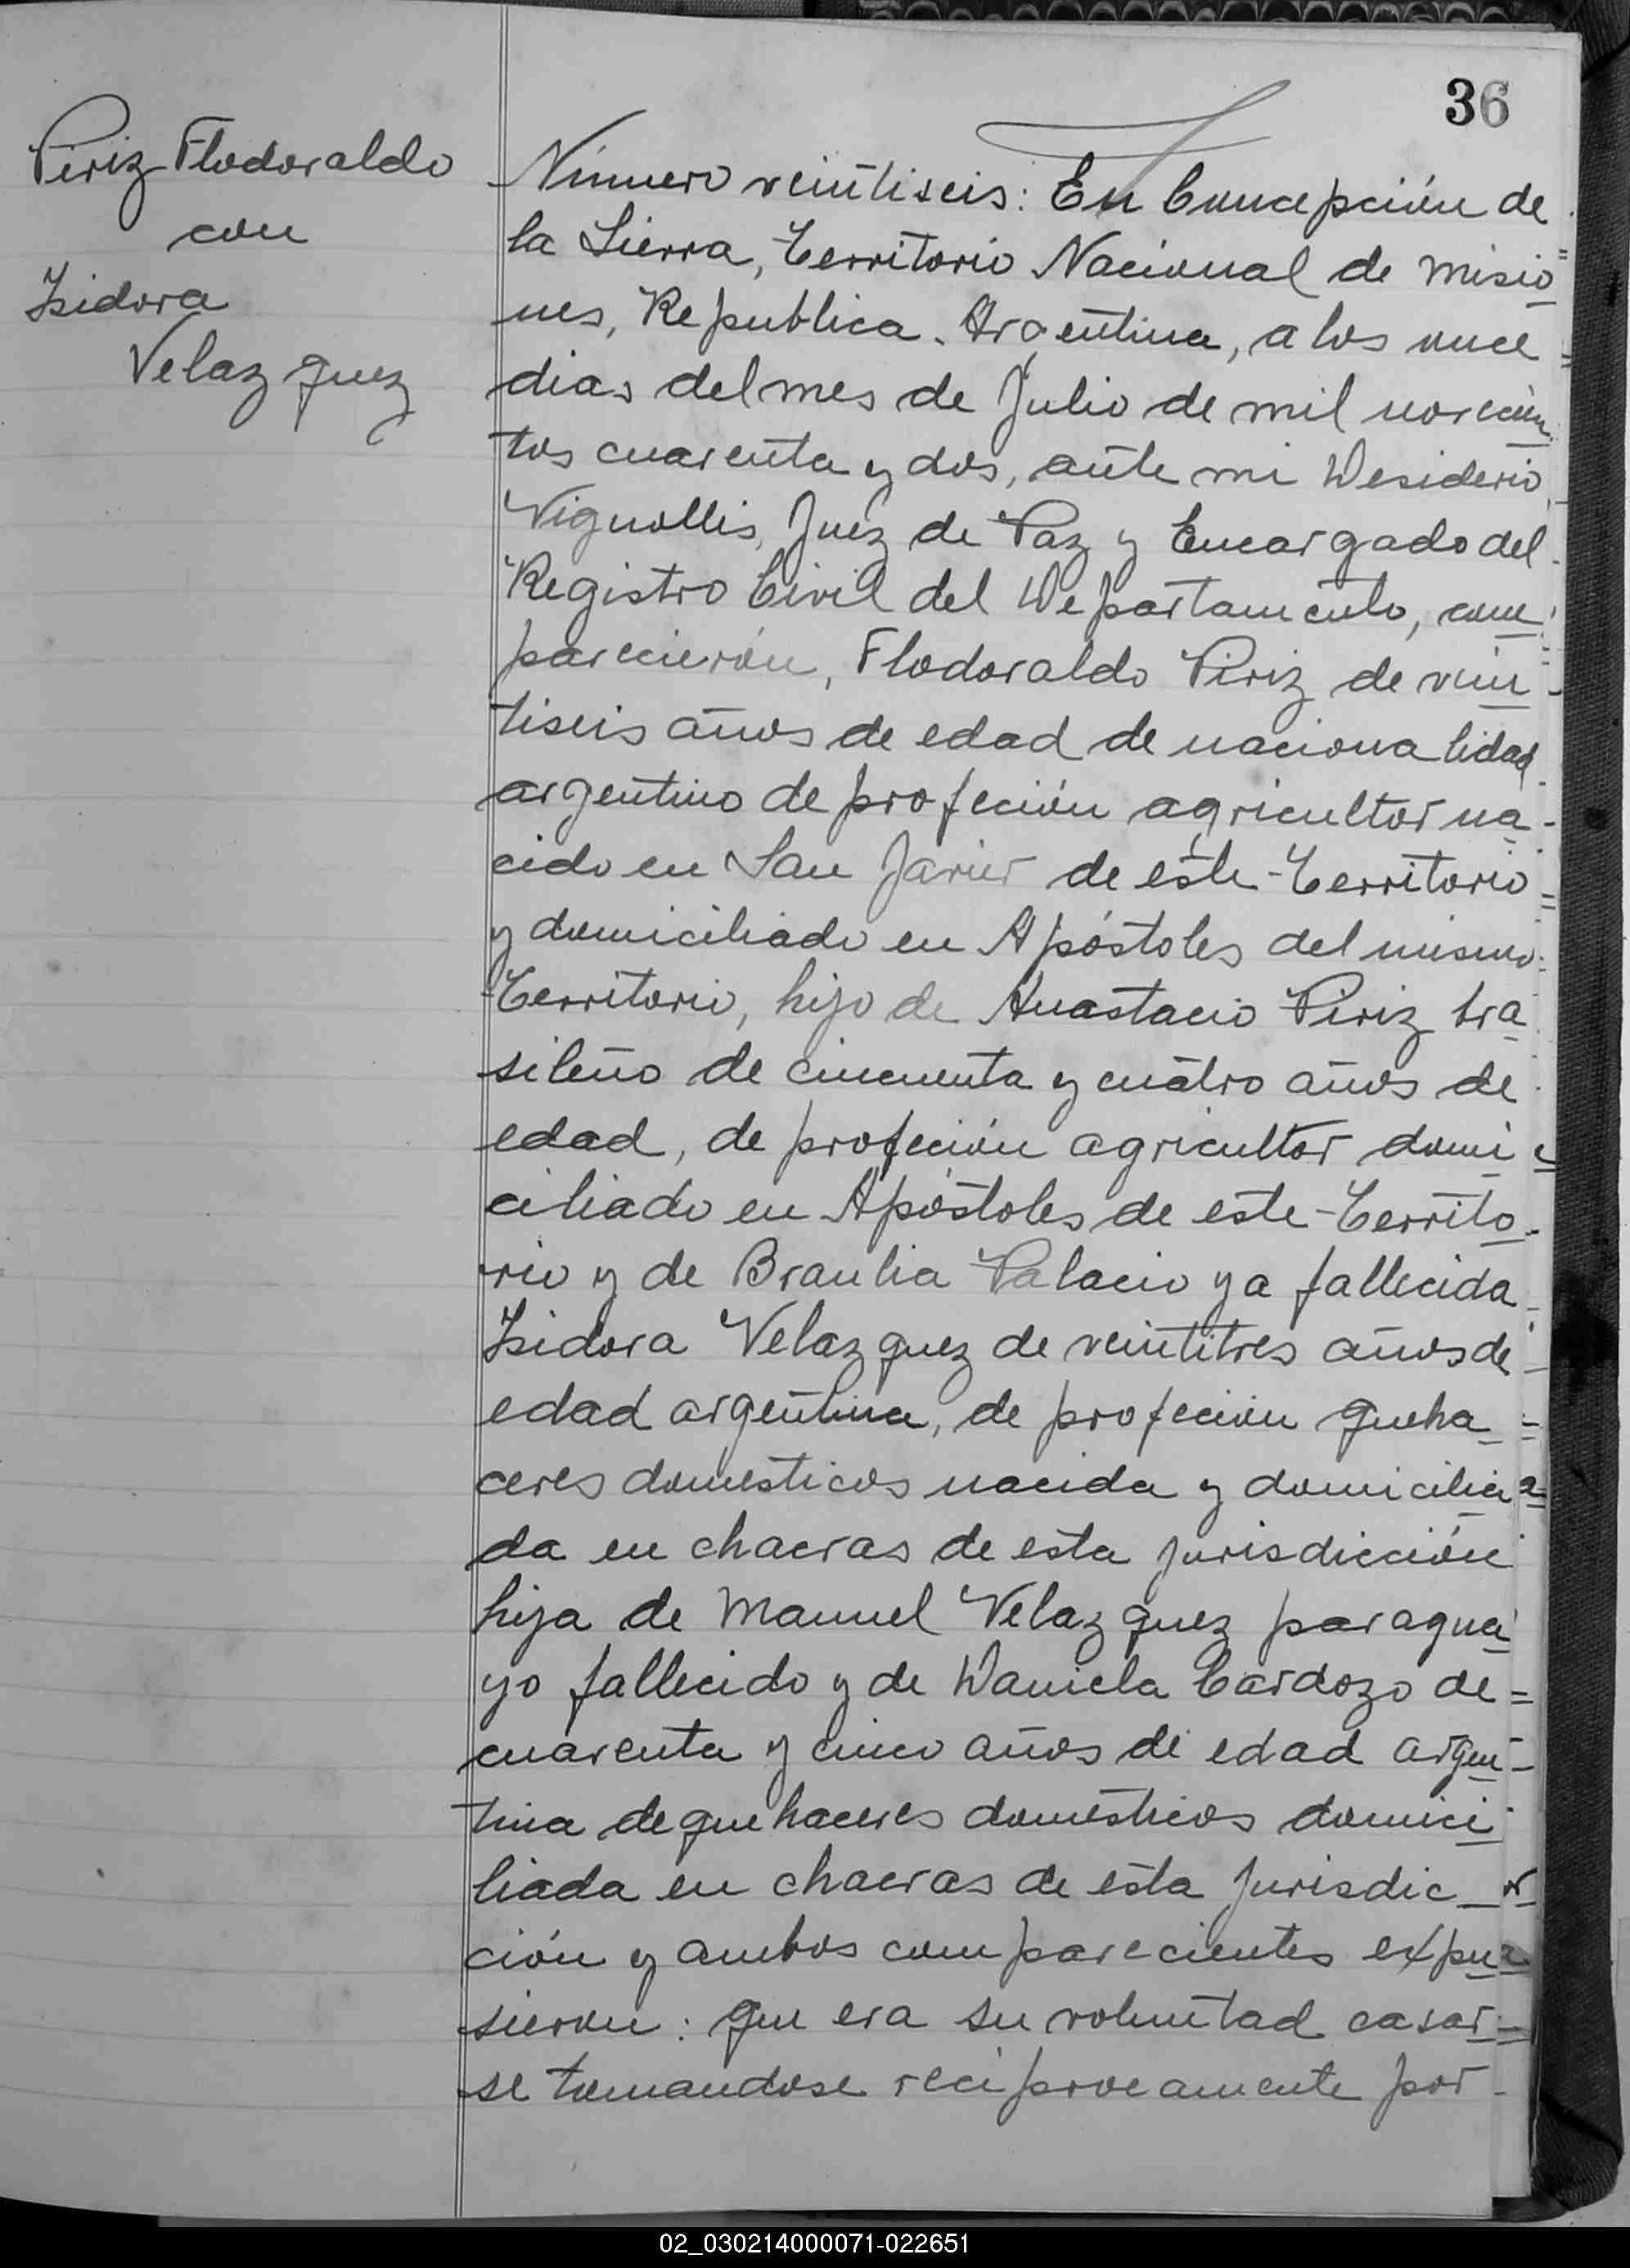 36
Piriz Flodoraldo
con
Isidora
Velazquez
Número veintiseis: En Concepción de
la Sierra, Territorio Nacional de Misio
nes, Republica Argentina, a los once
dias del mes de Julio de mil novecien
tos cuarenta y dos, ante mi Desiderio
Vignollis, Juez de Paz y Encargado del
Registro Civil del Departamento, com
parecierón, Flodoraldo Piriz de vein
tiseis años de edad de nacionalidad
argentino de profeción agricultor na
cido en San Javier de este Territorio
y domiciliado en Apóstoles del mismo
Territorio, hijo de Anastacio Piriz bra
sileño de cincuenta y cuatro años de
edad, de profeción agricultor domi
ciliado en Apóstoles de este Territo
rio y de Braulia Palacio ya fallecida
Isidora Velazquez de veintitres años de
edad argentina, de profeción queha
ceres domesticos nacida y domicilia
da en chacras de esta jurisdicción
hija de Manuel Velazquez paragua
yo fallecido y de Daniela Cardozo de
cuarenta y cinco años de edad argen
tina de quehaceres domésticos domici
liada en chacras de esta Jurisdic
ción y ambos comparecientes expu
sieron: que era su voluntad casar
se tomandose reciprocamente por
02_030214000071-022651